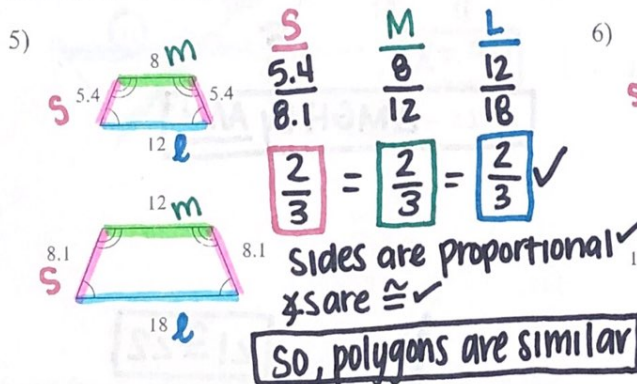 5)
8 m
S 5.4 5.4
12 l
12 m
S 8.1 8.1
18 l
S M L
5.4/8.1 8/12 12/18
2/3 = 2/3 = 2/3 ✓
sides are proportional ✓
∡s are ≅ ✓
so, polygons are similar
6)
S
1